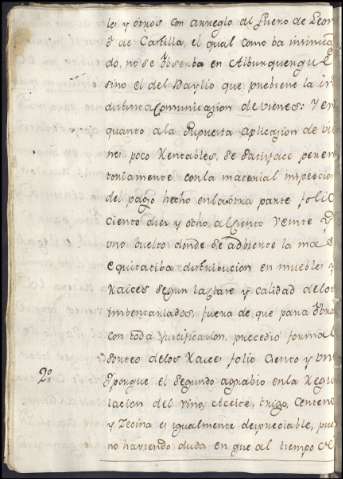 los y otros con arreglo al fuero de Leon
ò de Castilla, el qual como ba insinua
do, no se observa en Alburquerque
sino el del Baylio que previene la in
distinta Comunicazion de vienes: Y en
quanto a la supuesta aplicazion de vie
nes poco Rentables, se satisface peren
toriamente con la material inspeccion
del pasage hecho en la ôtra parte folio
Ciento diez y ôcho, al Ciento Veinte y
uno buelto donde se adbierte la mas
equitatiba distribucion en muebles y
Raices segun la clase y calidad de los
imbentariados, fuera de que para obrar
con toda Justificacion, precediò formal
Sorteo de los Raices folio Ciento y
2º Porque el segundo agrabio en la Regu
lacion del Vino, Aceite, trigo, Centeno
y Zecina es igualmente despreciable, pues
no haviendo duda en que al tiempo